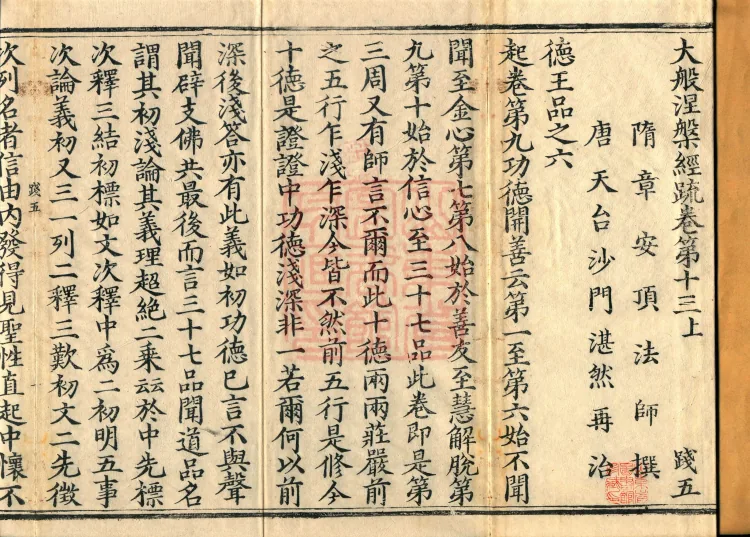 大般涅槃經疏卷第十三上 踐五
隋章安頂法師撰
唐天台沙門湛然再治
德王品之六
起卷第九功德開善云第一至第六始不聞
聞至金心第七第八始於善友至慧解脫第
九第十始於信心至三十七品此卷即是第
三周又有師言不爾而此十德兩兩莊嚴前
之五行乍淺乍深今皆不然前五行是修今
十德是證證中功德淺深非一若爾何以前
深後淺答亦有此義如初功德已言不與聲
聞辟支佛共最後而言三十七品聞道品名
謂其初淺論其義理超絕二乘云云於中先標
次釋三結初標如文次釋中爲二初明五事
次論義初又三一列二釋三歎初文二先徵
踐五
次列名者信由內發得見聖性直起中懷不